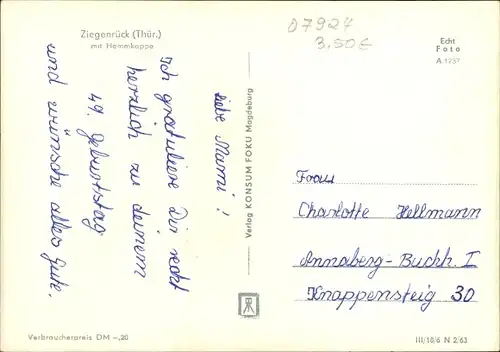 Ziegenrück (Thür.)
mit Hemmkoppe
07924
3.50€
Echt
Foto
A 1257
Liebe Mami!
Ich gratuliere Dir recht
herzlich zu deinem
49. Geburtstag
und wünsche alles Gute.
Verlag KONSUM FOKU Magdeburg
Frau
Charlotte Hellmann
Annaberg-Buchh. I
Knappensteig 30
Verbraucherpreis DM –,20
III/18/6 N 2/63